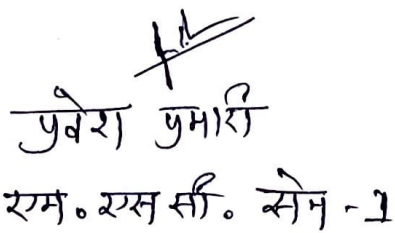 प्रवेश प्रभारी
एम. एस सी. सेम - 1